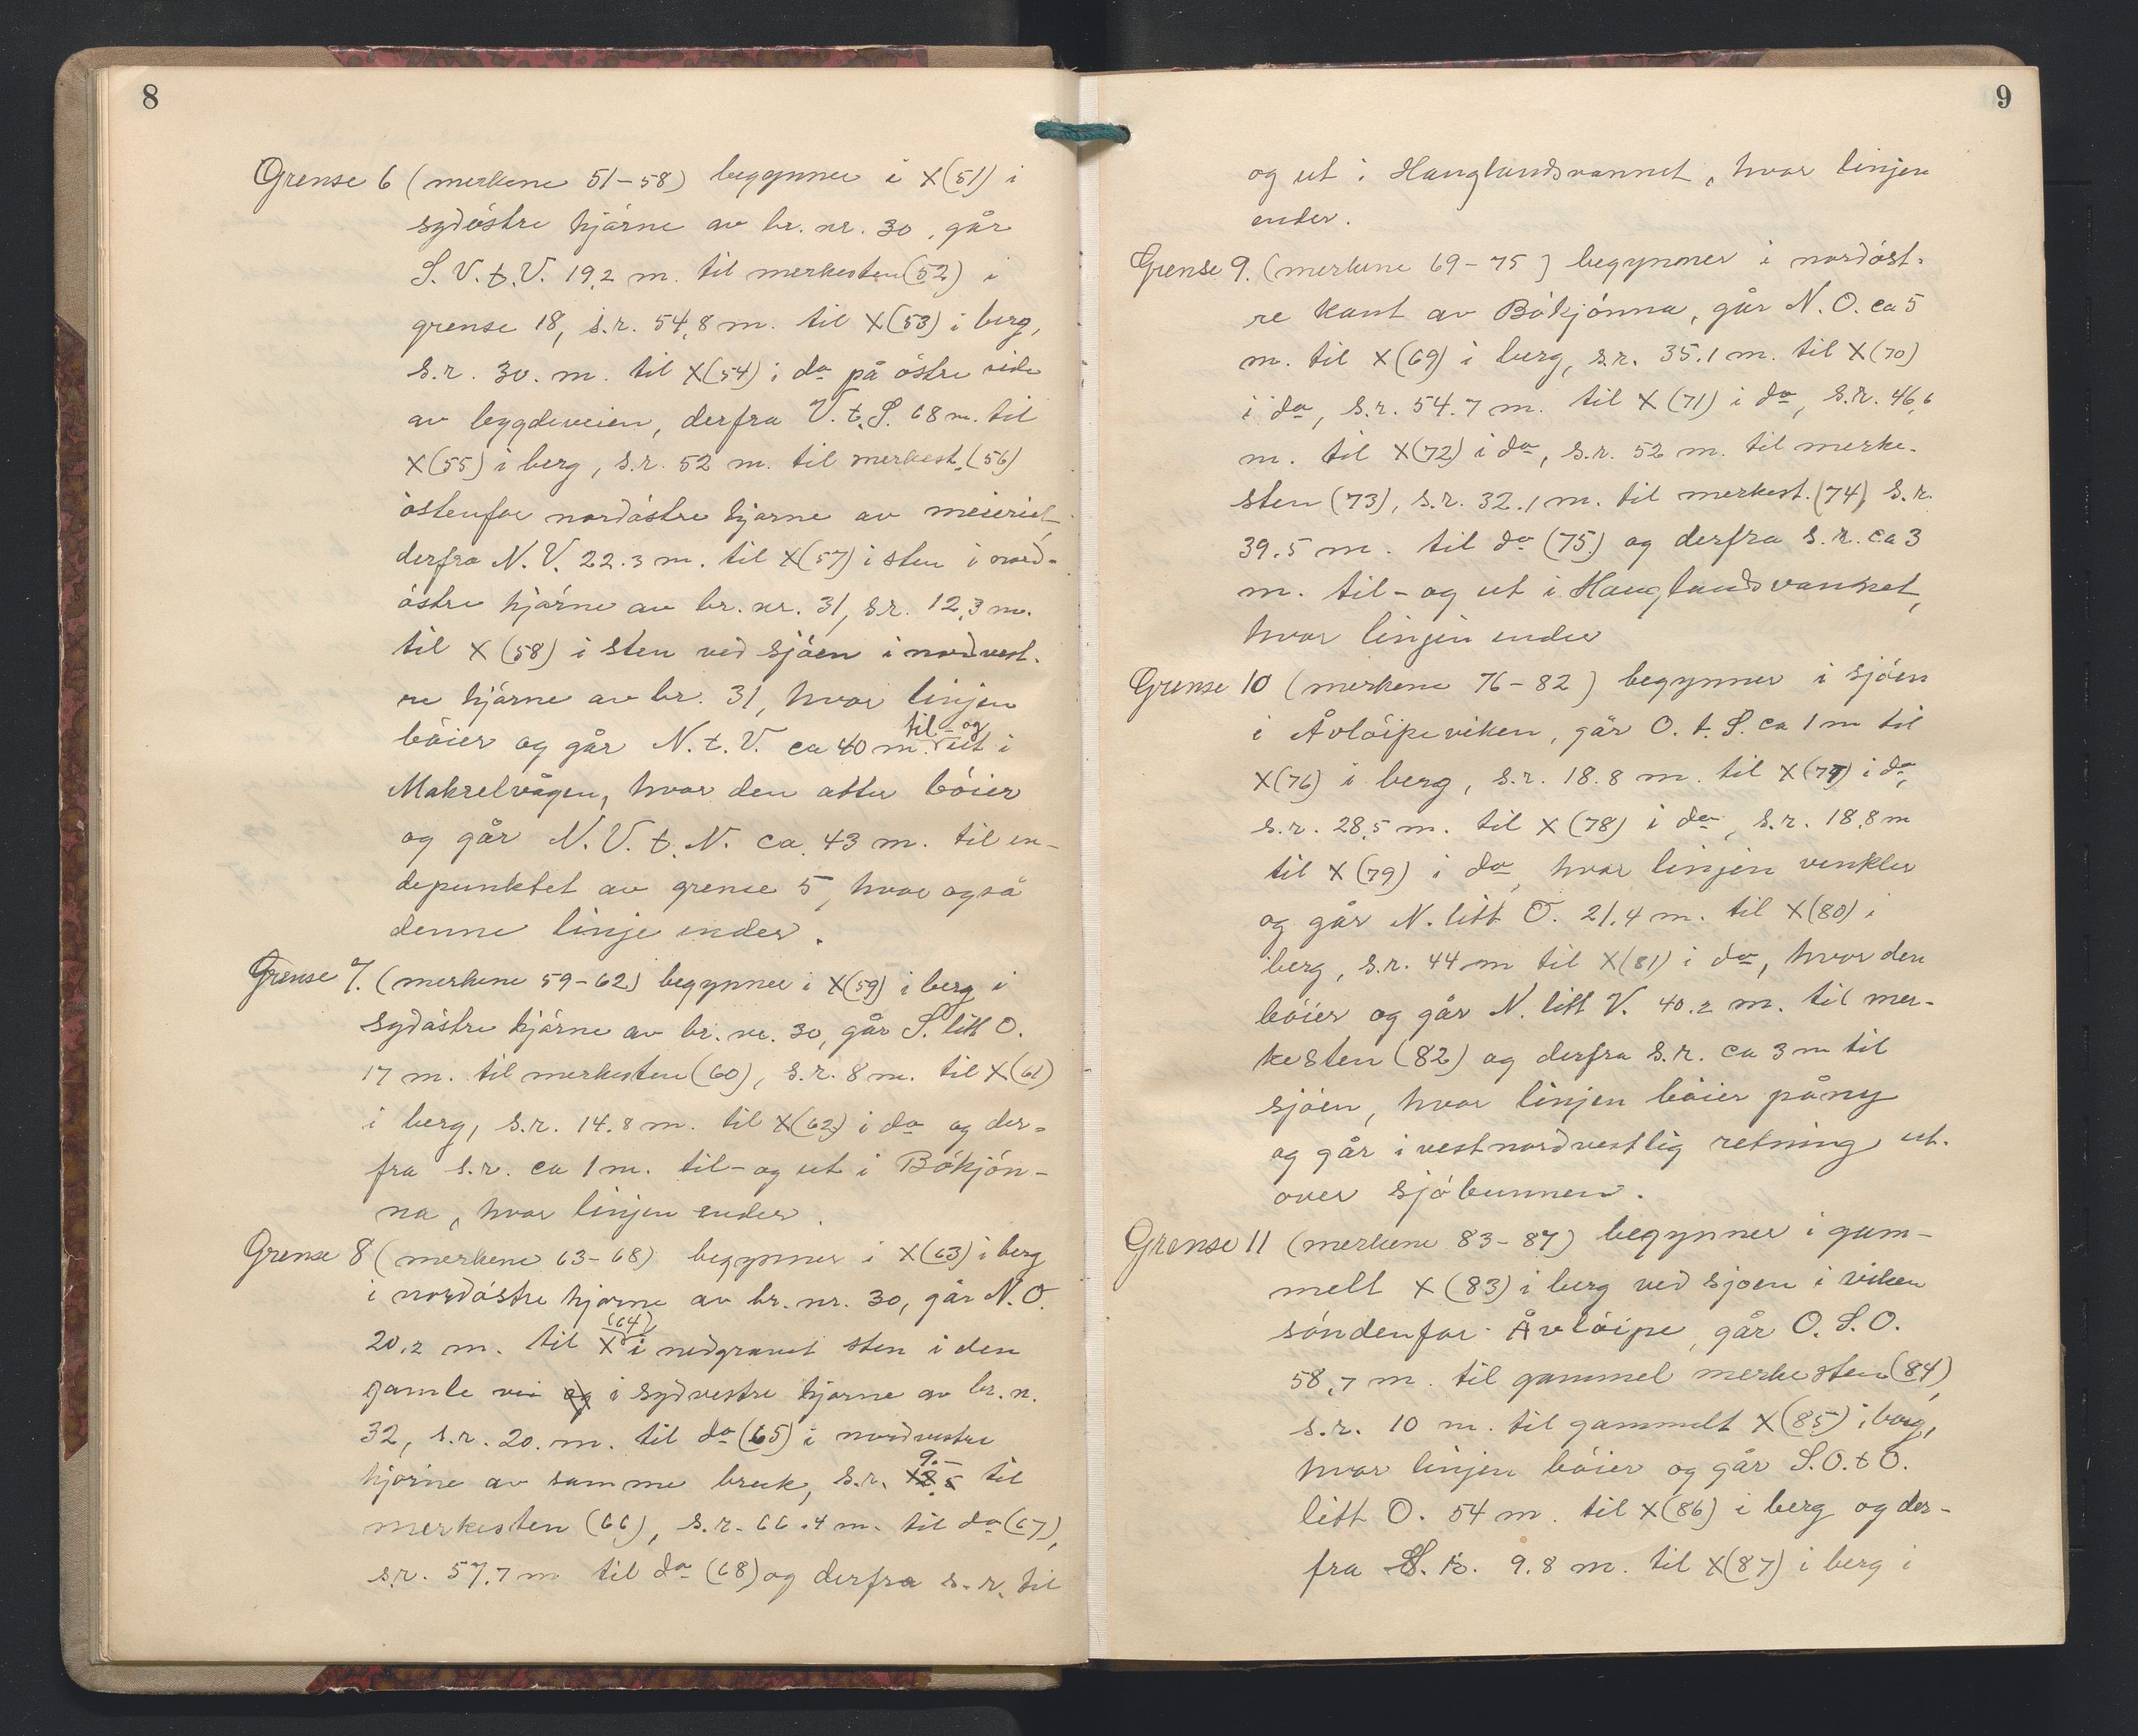 8
Grense 6 (merkene 51-58) begynner i X(51) i
sydöstre hjörne av br. nr. 30, går
S.V.t.V. 19,2 m. til merkesten (52) i
grense 18, s.r. 54,8 m. til X(53) i berg,
s.r. 30. m. til X(54) i do på östre side
av bygdeveien, derfra V.t.S. 68 m. til
X(55) i berg, s.r. 52 m. til merkest. (56)
östenfor nordöstre hjörne av meieriet
derfra N.V. 22.3 m. til X(57) i sten i nord-
östre hjörne av br. nr. 31, s.r. 12,3 m.
til X(58) i sten ved sjöen i nordvest-
re hjörne av br. 31, hvor linjen
böier og går N.t.V. ca 40 m. til- og ut i
Makrelvågen, hvor den atter böier
og går N.V.t.N. ca. 43 m. til en-
depunktet av grense 5, hvor også
denne linje ender.
Grense 7. (merkene 59-62) begynner i X(59) i berg i
sydöstre hjörne av br. nr. 30, går S. litt O.
17 m. til merkesten (60), s.r. 8 m. til X(61)
i berg, s.r. 14.8 m. til X(62) i do og der-
fra s.r. ca 1 m. til- og ut i Bökjön-
na, hvor linjen ender.
Grense 8 (merkene 63-68) begynner i X(63) i berg
i nordöstre hjörne av br. nr. 30, går N.O.
20,2 m. til X (64) i nedgravet sten i den
gamle vei og i sydvestre hjörne av br. n.
32, s.r. 20. m. til do (65) i nordvestre
hjörne av samme bruk, s.r. 9.- til
merkesten (66), s.r. 66.4 m. til do (67),
s.r. 57,7 m til do (68) og derfra s.r. til
9
og ut i Hauglandsvannet, hvor linjen
ender.
Grense 9. (merkene 69-75) begynner i nordöst-
re kant av Bökjönna, går N.O. ca 5
m. til X(69) i berg, s.r. 35.1 m. til X(70)
i do, s.r. 54.7 m. til X(71) i do, s.r. 46,6
m. til X(72) i do, s.r. 52 m. til merke-
sten (73), s.r. 32.1 m. til merkest. (74), s.r.
39.5 m. til do (75) og derfra s.r. ca 3
m. til- og ut i Hauglandsvannet,
hvor linjen ender
Grense 10 (merkene 76-82) begynner i sjöen
i Åvlöipeviken, går O.t.S. ca 1 m til
X(76) i berg, s.r. 18.8 m. til X(77) i do,
s.r. 28,5 m. til X(78) i do, s.r. 18,8 m
til X(79) i do, hvor linjen vinkler
og går N. litt O. 21.4 m. til X(80) i
berg, s.r. 44 m til X(81) i do, hvor den
böier og går N. litt V. 40.2 m. til mer-
kesten (82) og derfra s.r. ca 3 m til
sjöen, hvor linjen böier påny
og går i vestnordvestlig retning ut-
over sjöbunnen.
Grense 11 (merkene 83-87) begynner i gam-
melt X(83) i berg ved sjöen i viken
söndenfor Åvlöipe, går O.S.O.
58,7 m. til gammel merkesten (84),
s.r. 10 m. til gammelt X(85) i berg,
hvor linjen böier og går S.O.t.O.
litt O. 54 m. til X(86) i berg og der-
fra S. r. 9.8 m. til X(87) i berg i